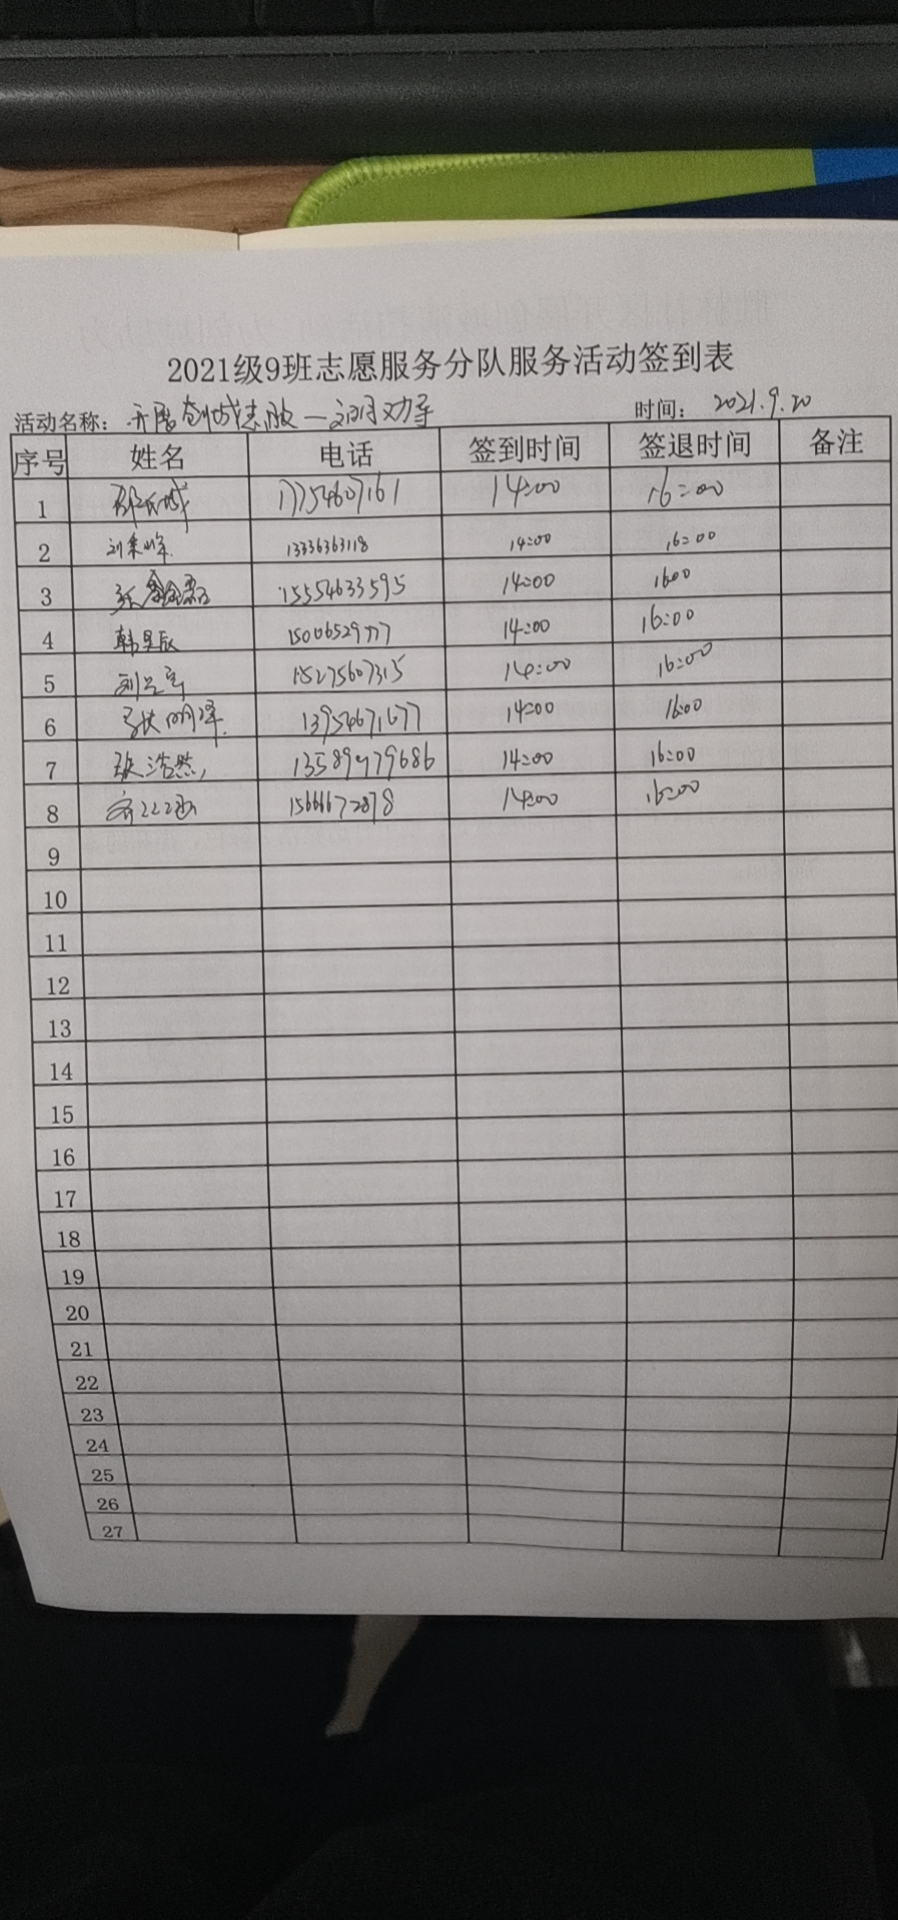 2021级9班志愿服务分队服务活动签到表
活动名称: 开展创城志服—文明劝导 时间: 2021.9.20
序号 姓名 电话 签到时间 签退时间 备注
1 17754607161 14:00 16:00
2 13336363118 14:00 16:00
3 张鑫磊 15554633595 14:00 16:00
4 韩昊辰 15006529777 14:00 16:00
5 15275607315 14:00 16:00
6 张明泽 13954671677 14:00 16:00
7 张浩然 13589979686 14:00 16:00
8 15666672878 14:00 16:00
9
10
11
12
13
14
15
16
17
18
19
20
21
22
23
24
25
26
27